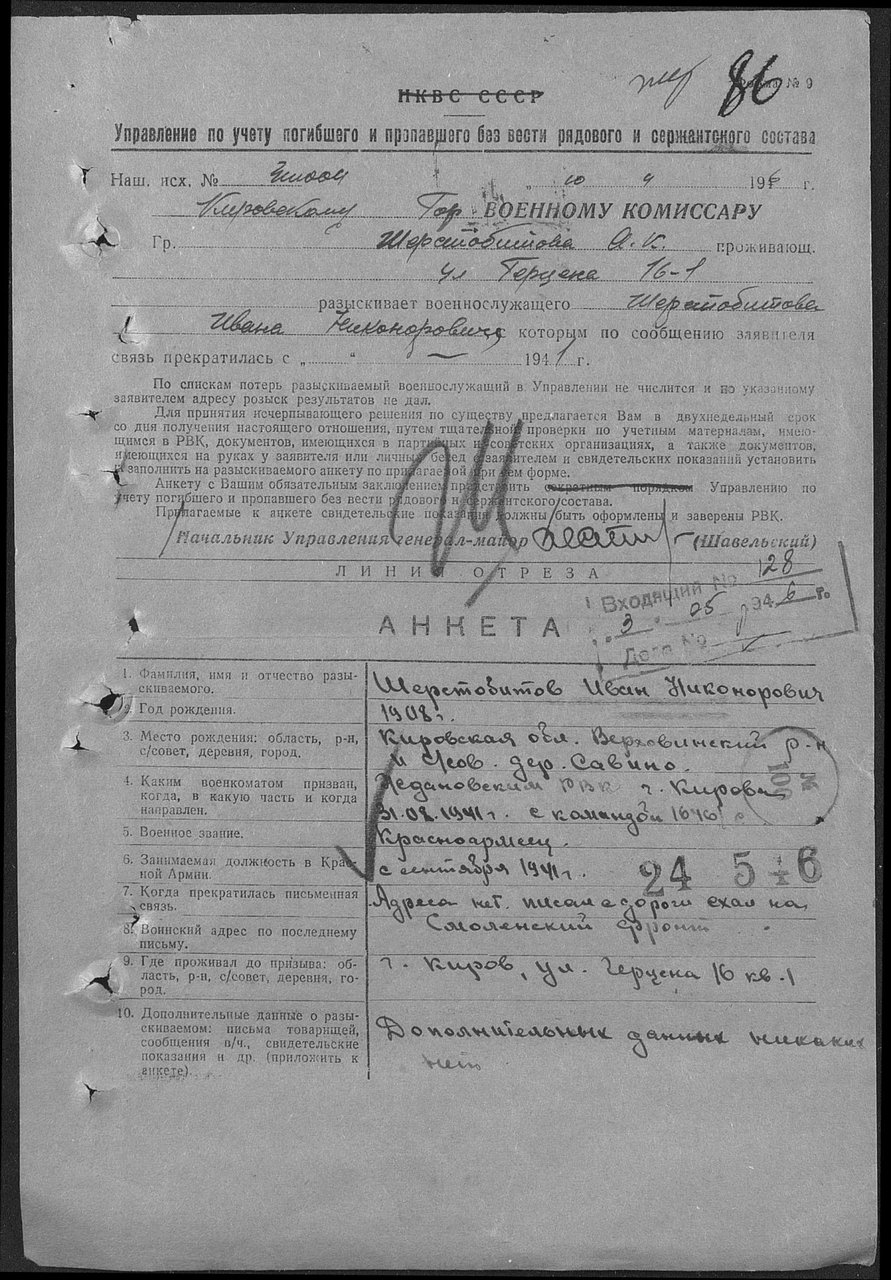 86
Форма № 9
НКВС СССР
Управление по учету погибшего и пропавшего без вести рядового и сержантского состава
Наш. исх. № „ 10 4 1946 г.
Кировскому Гор. ВОЕННОМУ КОМИССАРУ
Гр. Шерстобитова А. К. проживающ.
ул Герцена 16-1
разыскивает военнослужащего Шерстобитова
Ивана Никоноровича с которым по сообщению заявителя
связь прекратилась с „ “ — 1941 г.
По спискам потерь разыскиваемый военнослужащий в Управлении не числится и по указанному
заявителем адресу розыск результатов не дал.
Для принятия исчерпывающего решения по существу предлагается Вам в двухнедельный срок
со дня получения настоящего отношения, путем тщательной проверки по учетным материалам, имею-
щимся в РВК, документов, имеющихся в партийных и советских организациях, а также документов,
имеющихся на руках у заявителя или личных бесед с заявителем и свидетельских показаний установить
и заполнить на разыскиваемого анкету по прилагаемой при сем форме.
Анкету с Вашим обязательным заключением представить секретным порядком Управлению по
учету погибшего и пропавшего без вести рядового и сержантского состава.
Прилагаемые к анкете свидетельские показания должны быть оформлены и заверены РВК.
Начальник Управления генерал-майор (Шавельский)
ЛИНИЯ ОТРЕЗА
Входящий № 128
3 05 1946 г.
Дело №
АНКЕТА
1. Фамилия, имя и отчество разы-
скиваемого.
Шерстобитов Иван Никонорович
2. Год рождения.
1908 г.
3. Место рождения: область, р-н,
с/совет, деревня, город.
Кировская обл. Верховинский р-н
с/сов. дер. Савино.
4. Каким военкоматом призван,
когда, в какую часть и когда
направлен.
Ждановским РВК г. Кирова
31.08.1941 г. с командой 1646
5. Военное звание.
Красноармеец.
6. Занимаемая должность в Крас-
ной Армии.
7. Когда прекратилась письменная
связь.
с сентября 1941 г.
24 5 46
8. Воинский адрес по последнему
письму.
Адреса нет. писал с дороги ехал на
Смоленский фронт
9. Где проживал до призыва: об-
ласть, р-н, с/совет, деревня, го-
род.
г. Киров, ул. Герцена 16 кв. 1
10. Дополнительные данные о разы-
скиваемом: письма товарищей,
сообщения в/ч., свидетельские
показания и др. (приложить к
анкете)
Дополнительных данных никаких
нет